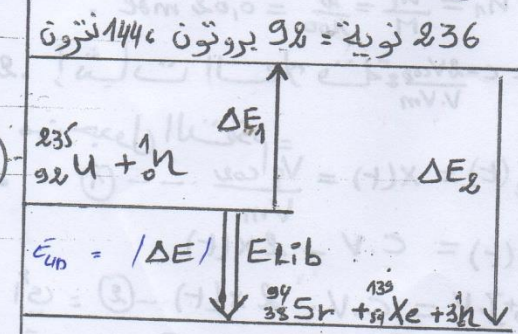 236 نوية = 92 بروتون، 144 نترون
ΔE₁
²³⁵₉₂U + ¹₀n
ΔE₂
E_Lib = |ΔE| ELib
⁹⁴₃₈Sr ¹³⁹₅₄Xe + 3¹₀n